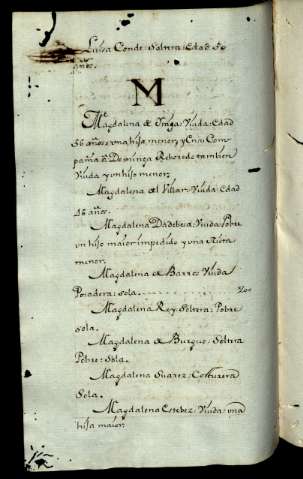 Luisa Conde: Soltera: Edad 50
años.
M
Magdalena de Fraga: Viuda: Edad
56 años: una hija menor, y en su Com
pañia a Dominga Reboredo tambien
Viuda y un hijo menor.
Magdalena del Villar: Viuda: Edad
46 años.
Magdalena Viuda Pobre
un hijo maior impedido y una Nieta
menor.
Magdalena de Barros Viuda
Posadera: sola.
Magdalena Rey: Soltera: Pobre
sola.
Magdalena de Burgos: Soltera
Pobre: Sola.
Magdalena Suarez: Costurera
Sola.
Magdalena Estebez: Viuda: una
hija maior.